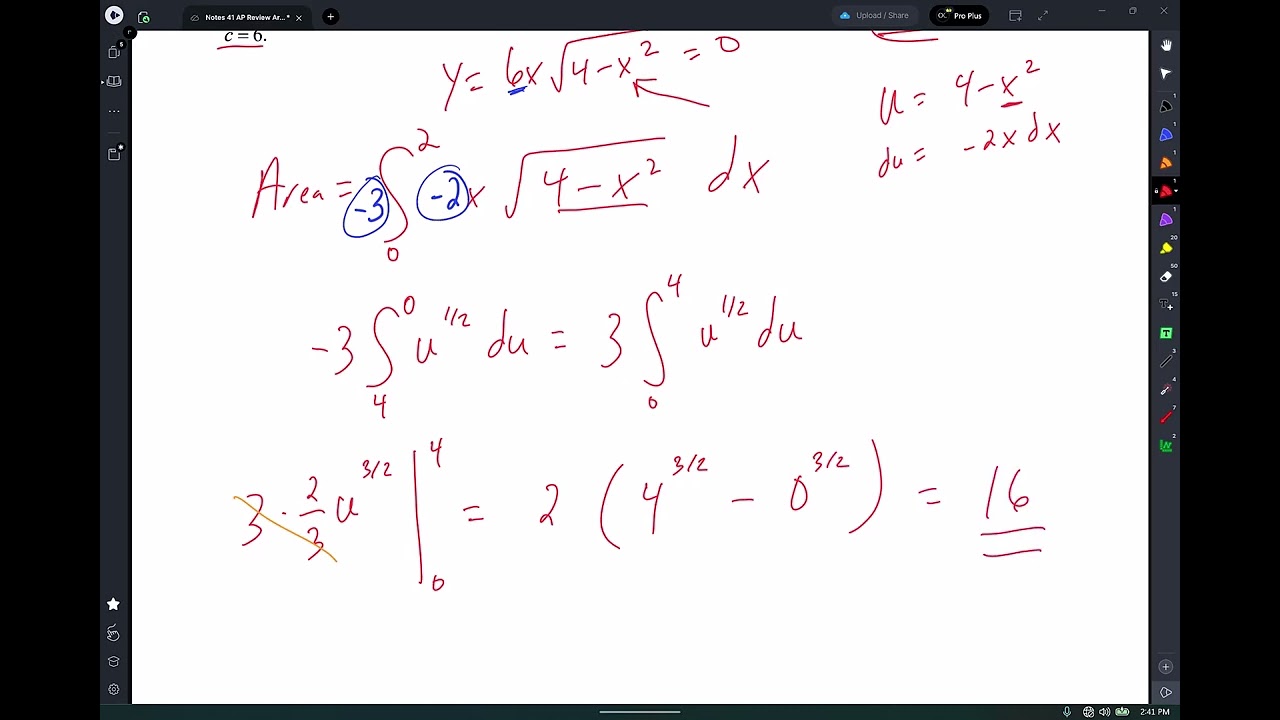 Notes 41 AP Review Ar... *
Upload / Share
Pro Plus
c = 6.
y = 6x√(4-x²) = 0
u = 4-x²
du = -2x dx
Area = -3 ∫₀² -2x √(4-x²) dx
-3 ∫₄⁰ u^1/2 du = 3 ∫₀⁴ u^1/2 du
3 · 2/3 u^3/2 |₀⁴ = 2 (4^3/2 - 0^3/2) = 16
2:41 PM